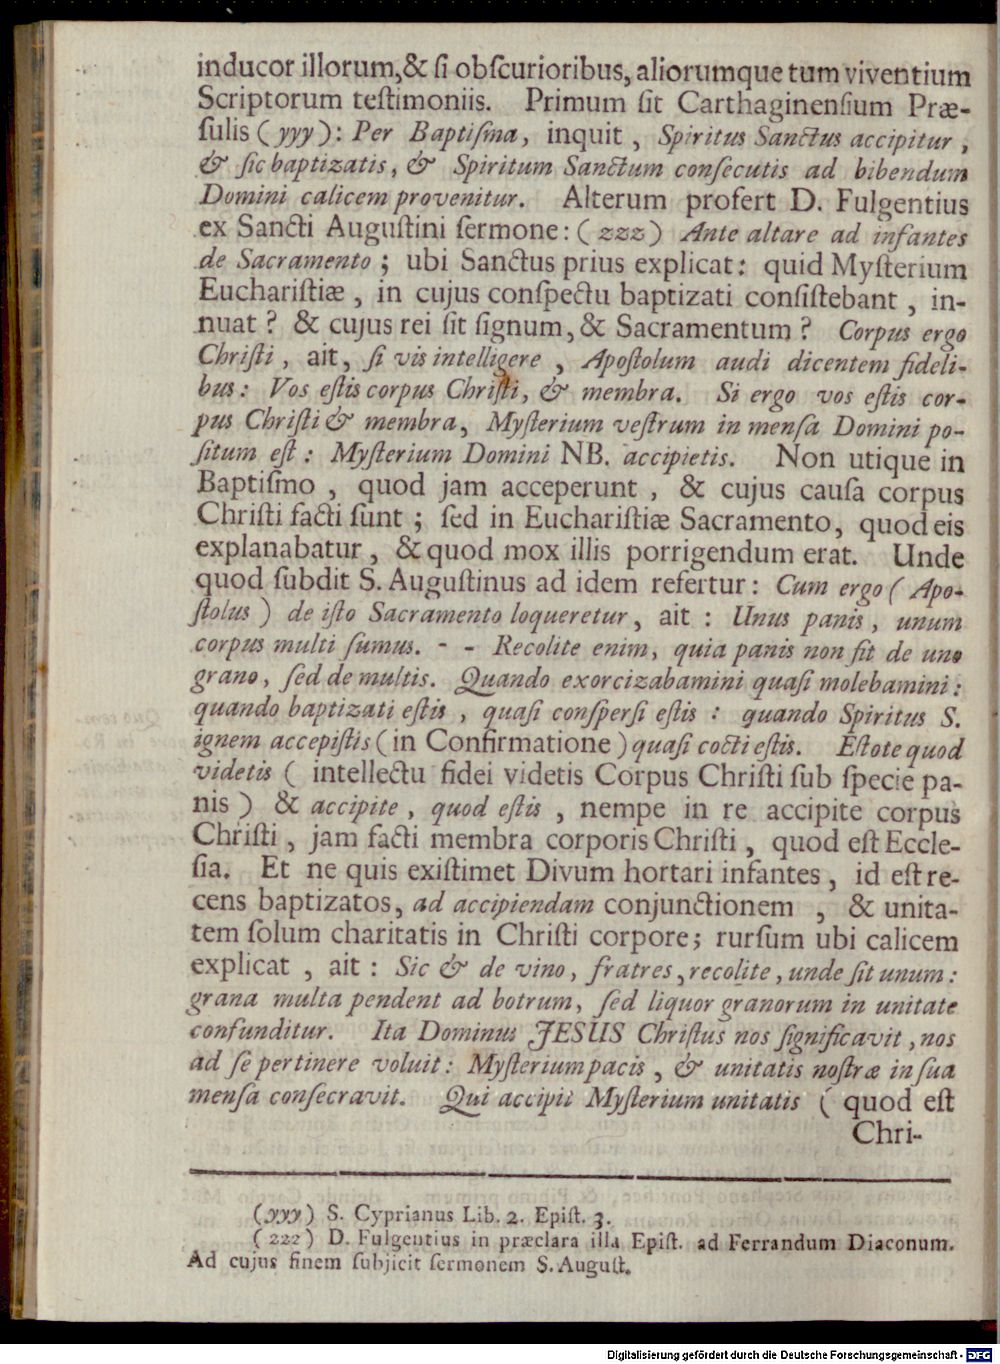 inducor illorum, & ſi obſcurioribus, aliorumque tum viventium
Scriptorum teſtimoniis. Primum ſit Carthaginenſium Præ-
ſulis (yyy): Per Baptiſma, inquit, Spiritus Sanctus accipitur,
& ſic baptizatis, & Spiritum Sanctum conſecutis ad bibendum
Domini calicem provenitur. Alterum profert D. Fulgentius
ex Sancti Auguſtini ſermone: (zzz) Ante altare ad infantes
de Sacramento; ubi Sanctus prius explicat: quid Myſterium
Euchariſtiæ, in cujus conſpectu baptizati conſiſtebant, in-
nuat? & cujus rei ſit ſignum, & Sacramentum? Corpus ergo
Chriſti, ait, ſi vis intelligere, Apoſtolum audi dicentem fideli-
bus: Vos eſtis corpus Chriſti, & membra. Si ergo vos eſtis cor-
pus Chriſti & membra, Myſterium veſtrum in menſa Domini po-
ſitum eſt: Myſterium Domini NB. accipietis. Non utique in
Baptiſmo, quod jam acceperunt, & cujus cauſa corpus
Chriſti facti ſunt; ſed in Euchariſtiæ Sacramento, quod eis
explanabatur, & quod mox illis porrigendum erat. Unde
quod ſubdit S. Auguſtinus ad idem refertur: Cum ergo (Apo-
ſtolus) de iſto Sacramento loqueretur, ait: Unus panis, unum
corpus multi ſumus. - - Recolite enim, quia panis non fit de uno
grano, ſed de multis. Quando exorcizabamini quaſi molebamini:
quando baptizati eſtis, quaſi conſperſi eſtis: quando Spiritus S.
ignem accepiſtis (in Confirmatione) quaſi cocti eſtis. Eſtote quod
videtis (intellectu fidei videtis Corpus Chriſti ſub ſpecie pa-
nis) & accipite, quod eſtis, nempe in re accipite corpus
Chriſti, jam facti membra corporis Chriſti, quod eſt Eccle-
ſia. Et ne quis exiſtimet Divum hortari infantes, id eſt re-
cens baptizatos, ad accipiendam conjunctionem, & unita-
tem ſolum charitatis in Chriſti corpore; rurſum ubi calicem
explicat, ait: Sic & de vino, fratres, recolite, unde ſit unum:
grana multa pendent ad botrum, ſed liquor granorum in unitate
confunditur. Ita Dominus JESUS Chriſtus nos ſignificavit, nos
ad ſe pertinere voluit: Myſterium pacis, & unitatis noſtræ in ſua
menſa conſecravit. Qui accipit Myſterium unitatis (quod eſt
Chri-
(yyy) S. Cyprianus Lib. 2. Epiſt. 3.
(zzz) D. Fulgentius in præclara illa Epiſt. ad Ferrandum Diaconum.
Ad cujus finem ſubjicit ſermonem S. Auguſt.
Digitalisierung gefördert durch die Deutsche Forschungsgemeinschaft - DFG